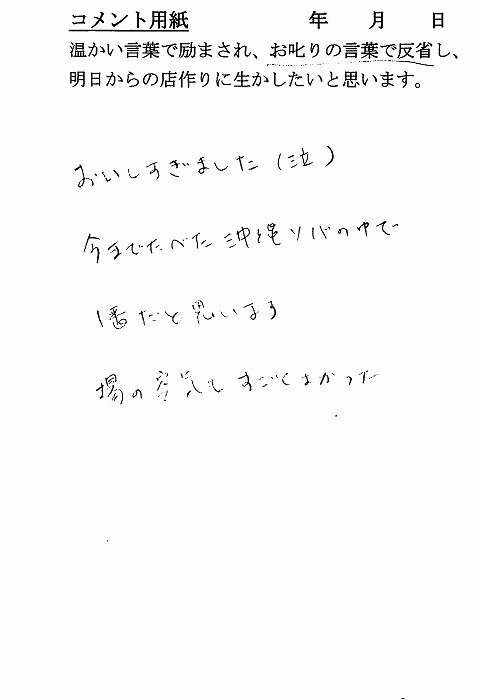 コメント用紙 年 月 日
温かい言葉で励まされ、お叱りの言葉で反省し、
明日からの店作りに生かしたいと思います。
おいしすぎました(泣)
今までたべた沖縄ソバの中で
1番だと思います
場の空気もすごくよかった